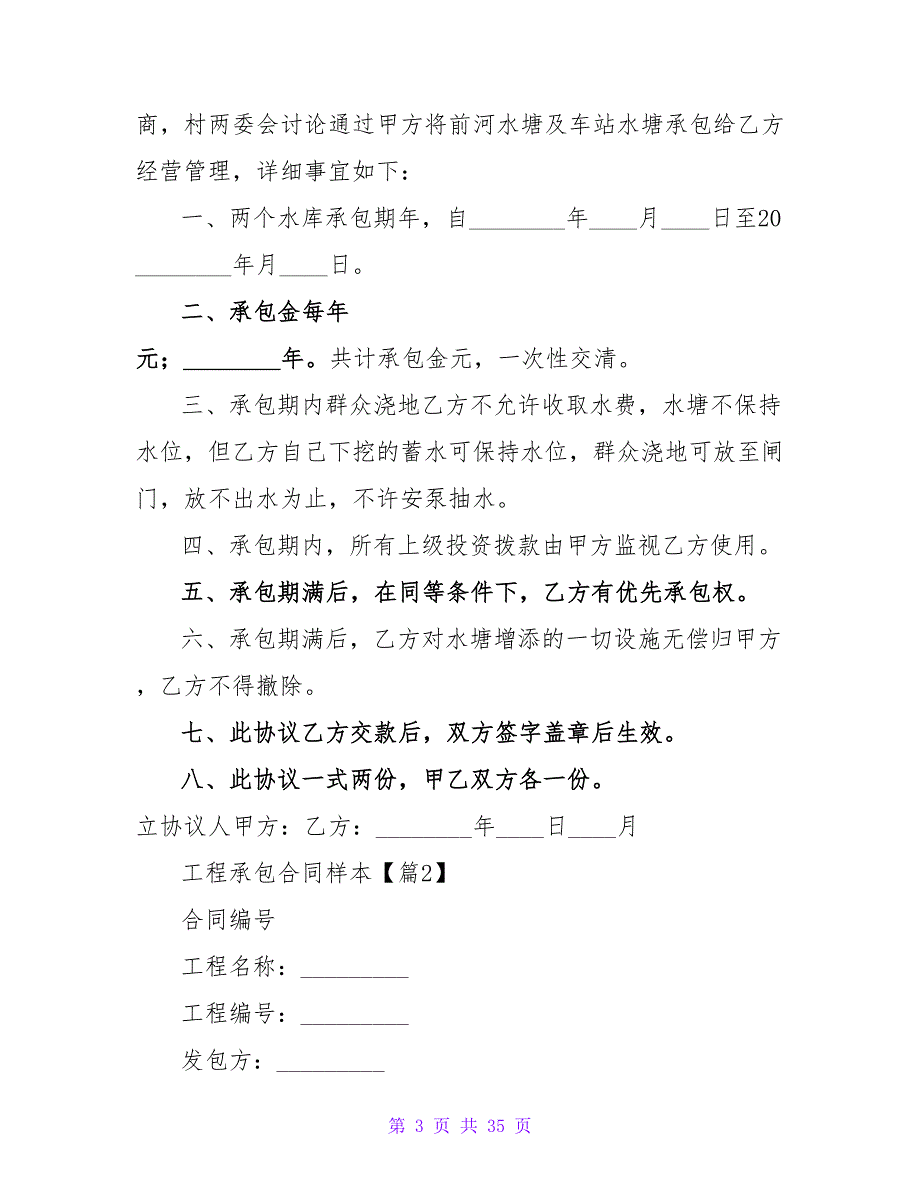 商，村两委会讨论通过甲方将前河水塘及车站水塘承包给乙方
经营管理，详细事宜如下：
一、两个水库承包期年，自________年____月____日至20
________年月____日。
二、承包金每年
元；________年。共计承包金元，一次性交清。
三、承包期内群众浇地乙方不允许收取水费，水塘不保持
水位，但乙方自己下挖的蓄水可保持水位，群众浇地可放至闸
门，放不出水为止，不许安泵抽水。
四、承包期内，所有上级投资拨款由甲方监视乙方使用。
五、承包期满后，在同等条件下，乙方有优先承包权。
六、承包期满后，乙方对水塘增添的一切设施无偿归甲方
，乙方不得撤除。
七、此协议乙方交款后，双方签字盖章后生效。
八、此协议一式两份，甲乙双方各一份。
立协议人甲方：乙方：________年____日____月
工程承包合同样本【篇2】
合同编号
工程名称：_________
工程编号：_________
发包方：_________
第 3 页 共 35 页